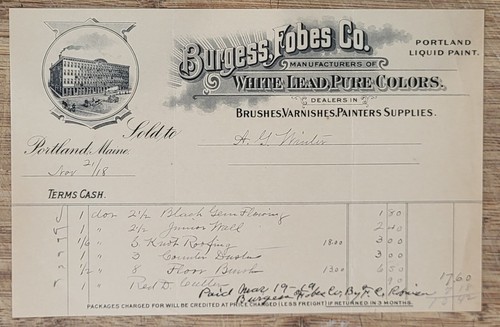 Burgess, Fobes Co.
MANUFACTURERS OF
WHITE LEAD, PURE COLORS.
PORTLAND
LIQUID PAINT.
DEALERS IN
BRUSHES, VARNISHES, PAINTERS SUPPLIES.
Sold to A. G. Winter
Portland, Maine.
Nov 21/18
TERMS CASH.
1 doz 2½ Black Gem Flowing 1
1 " 2½ Junior Wall 2
1/6 " 3 Knot Roofing 1800 3
" 3 Counter Dusters
1/2 " 8 Floor Brush 1300 6
1 " Red D. 17.60
Paid 19-19
Burgess Fobes Co. By
PACKAGES CHARGED FOR WILL BE CREDITED AT PRICE CHARGED (LESS FREIGHT) IF RETURNED IN 3 MONTHS.